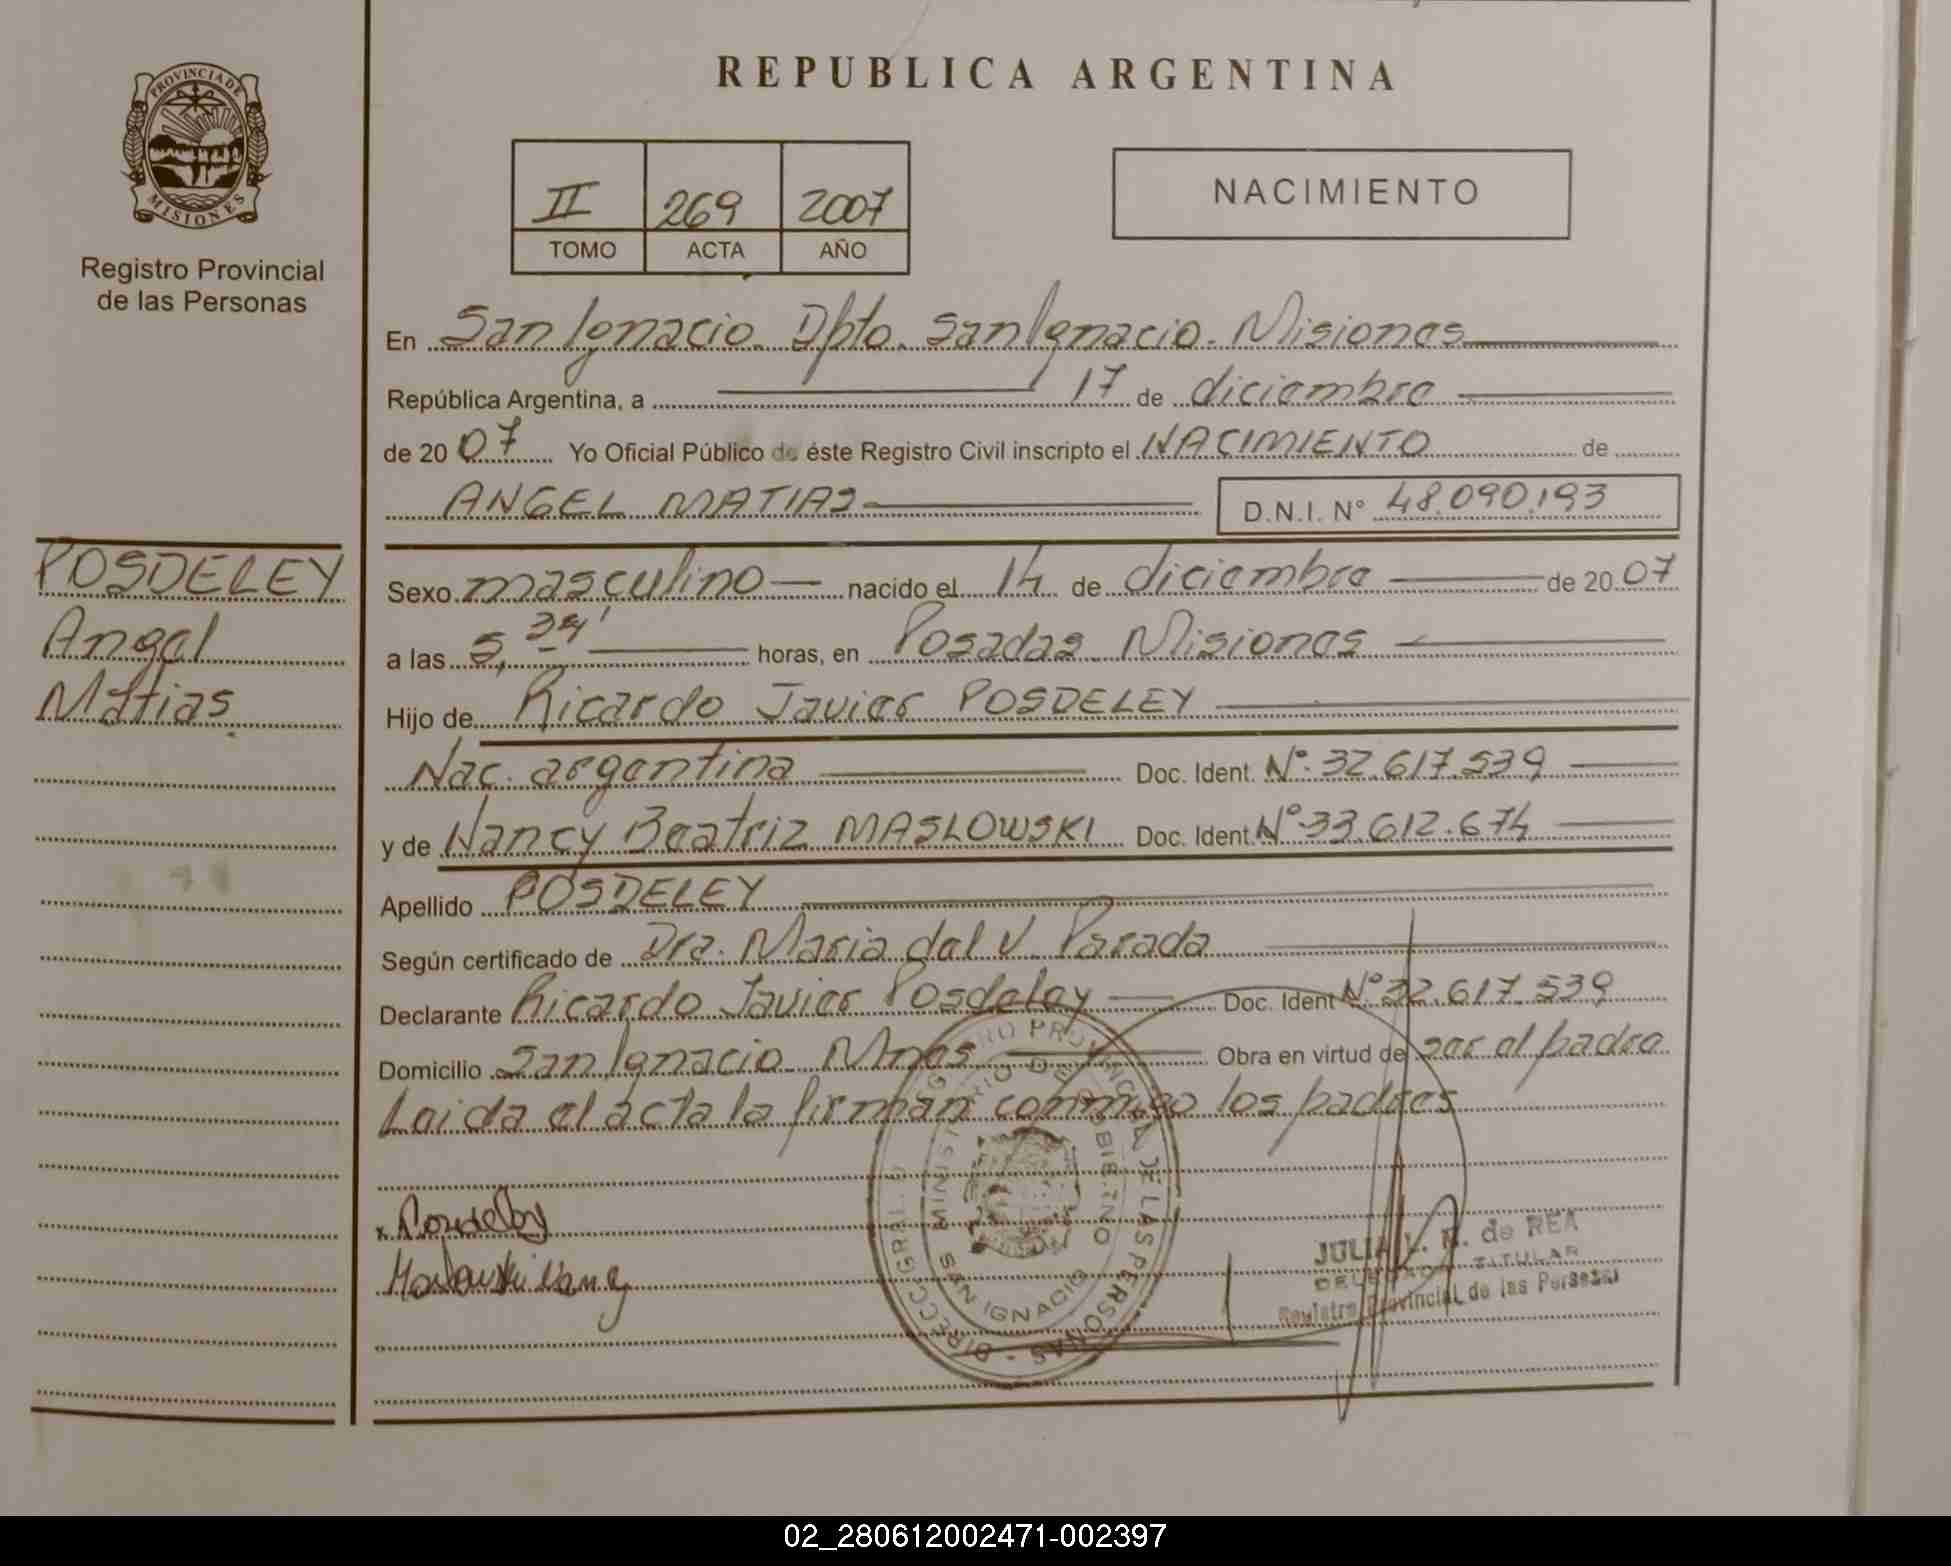 REPUBLICA ARGENTINA
PROVINCIA DE
MISIONES
Registro Provincial
de las Personas
II 269 2007
TOMO ACTA AÑO
NACIMIENTO
En San Ignacio. Dpto. San Ignacio. Misiones
República Argentina, a 17 de diciembre
de 2007 Yo Oficial Público de éste Registro Civil inscripto el NACIMIENTO de
ANGEL MATIAS D.N.I. Nº 48.090.193
POSDELEY
Angel
Matias
Sexo masculino nacido el 14 de diciembre de 2007
a las 5, horas, en Posadas Misiones
Hijo de Ricardo Javier POSDELEY
Nac. argentina Doc. Ident. Nº 32.617.539
y de Nancy Beatriz MASLOWSKI Doc. Ident. Nº 33.612.674
Apellido POSDELEY
Según certificado de Dra. Maria del V. Parada
Declarante Ricardo Javier Posdeley Doc. Ident Nº 32.617.539
Domicilio San Ignacio Mnes Obra en virtud de ser el padre
Leida el acta la firman conmigo los padres
Posdeley
DIRECC. GRAL. PROVINCIAL DE LAS PERSONAS
MINISTERIO DE GOBIERNO
SAN IGNACIO
JULIA de REA
DELEGADO TITULAR
Registro Provincial de las Personas
02_280612002471-002397